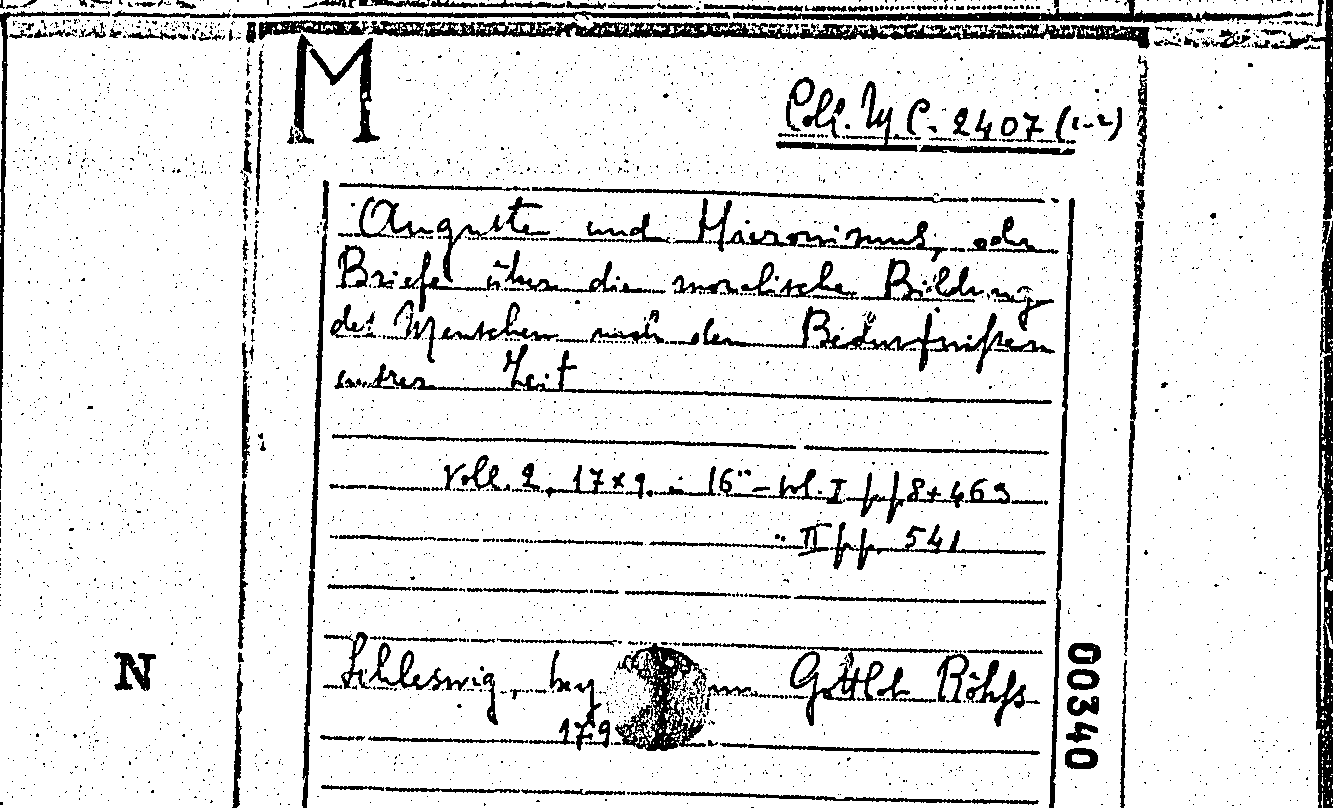 M
Coll. M C. 2407 (1-2)
Auguste und Hieronimus, oder
Briefe über die moralische Bildung
des Menschen nach den Bedürfnissen
unsrer Zeit
Voll. 2. 17x9. in 16° - vol. I pp 8+463
" II pp. 541
N
Schleswig, bey Gottlob Röhss
179
00340